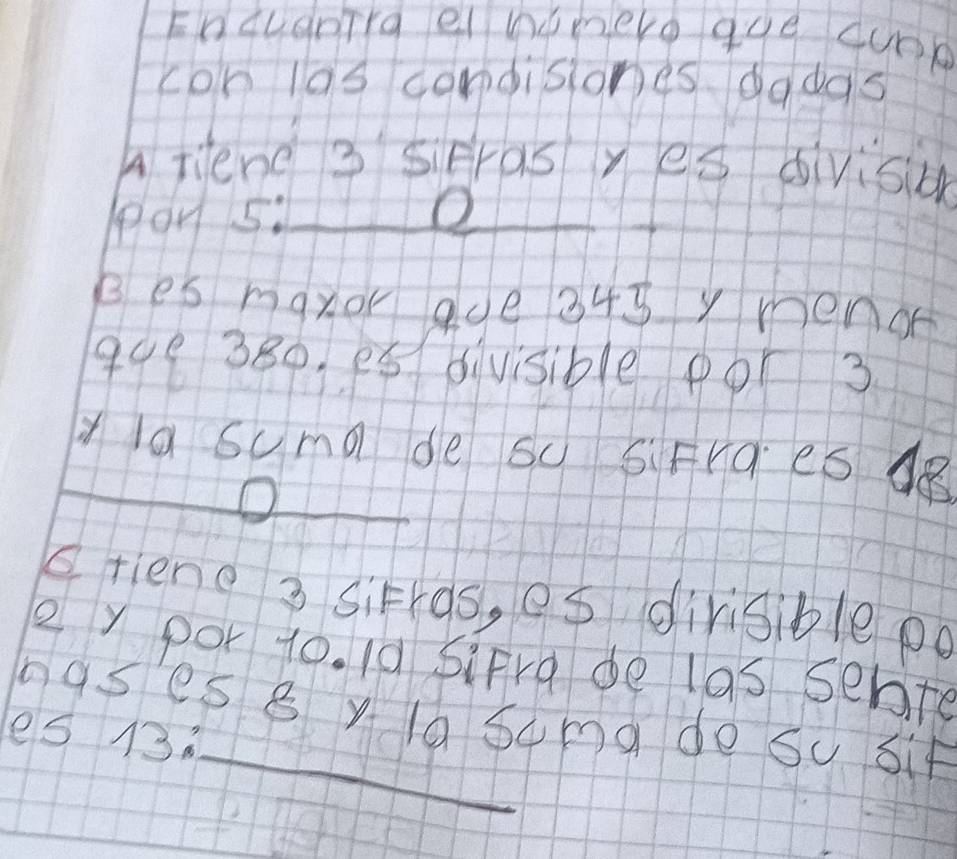 Encuantra el número que cunp
con las condisiones dadas
A Tiene 3 sifras y es divisibl
por 5: 0
B es mayor que 345 y menor
que 380. es divisible por 3
y la suma de su sifra es 18
0
C tiene 3 sifras, es dirisible po
2 y por 10. la sifra de las sente
nas es 8 y la suma de su sif
es 13: